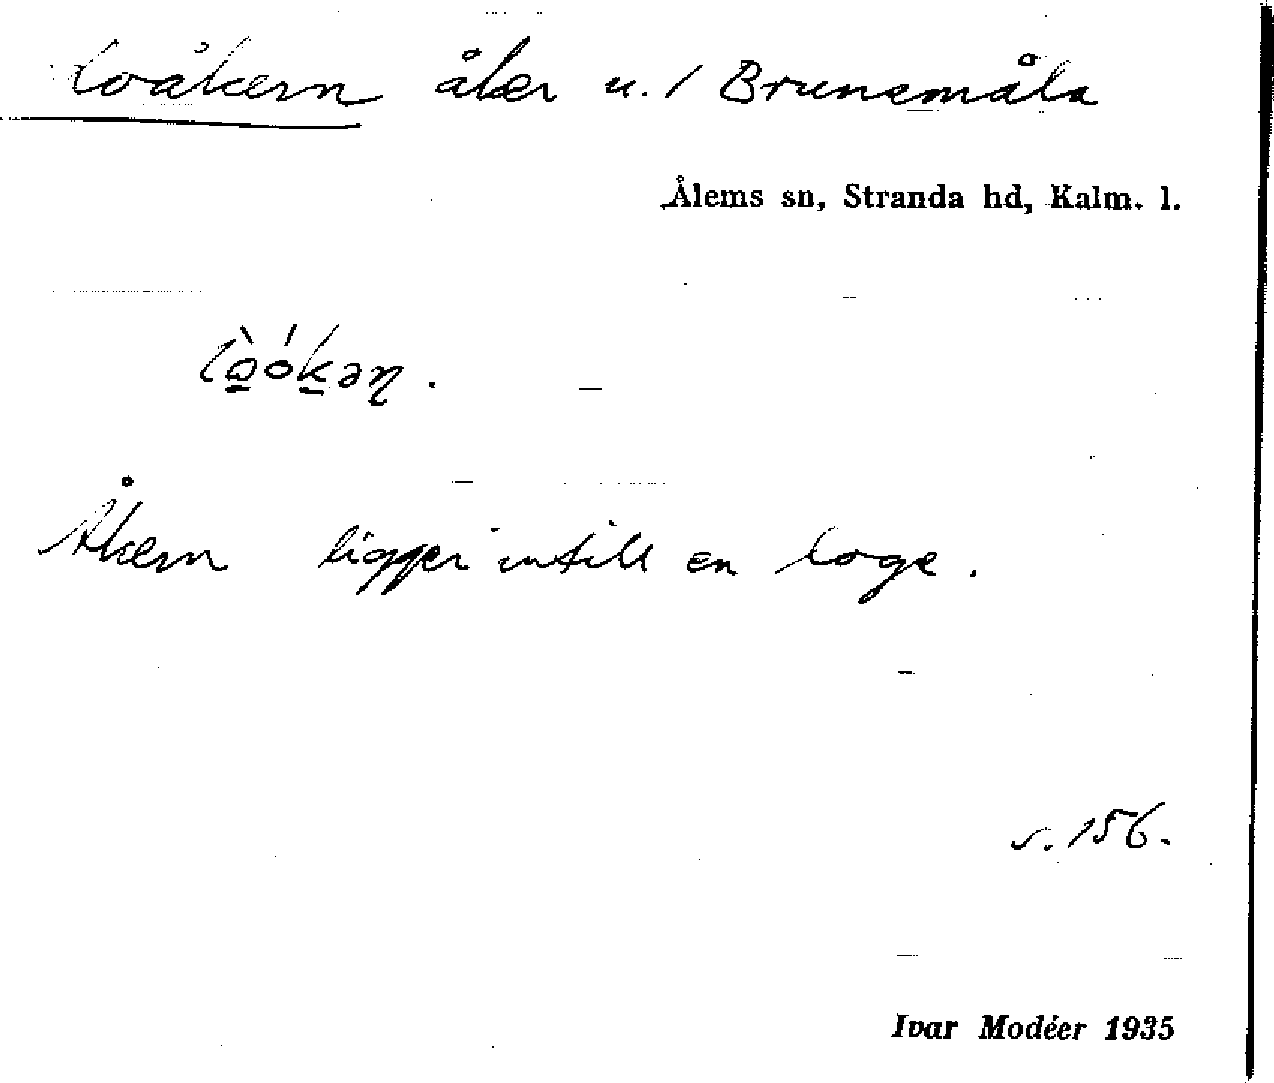 Loåkern åker u. / Brunsmåla
Ålems sn, Stranda hd, Kalm. l.
lò̠ók̠əɳ.
Åkern ligger intill en loge.
s. 156.
Ivar Modéer 1935